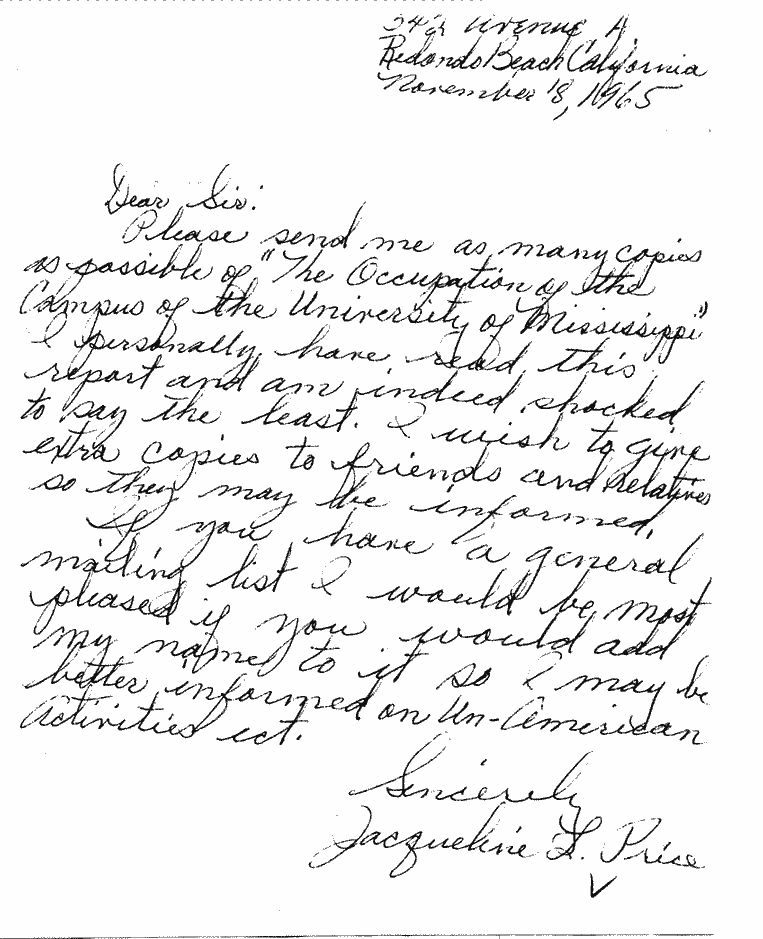 Avenue A
Redondo Beach California
November 18, 1965
Dear Sir:
Please send me as many copies
as possible of "The Occupation of the
Campus of the University of Mississippi"
I personally have read this
report and am indeed shocked
to say the least. I wish to give
extra copies to friends and relatives
so they may be informed.
If you have a general
mailing list I would be most
pleased if you would add
my name to it so I may be
better informed on Un-American
Activities ect.
Sincerely
Jacqueline L. Price